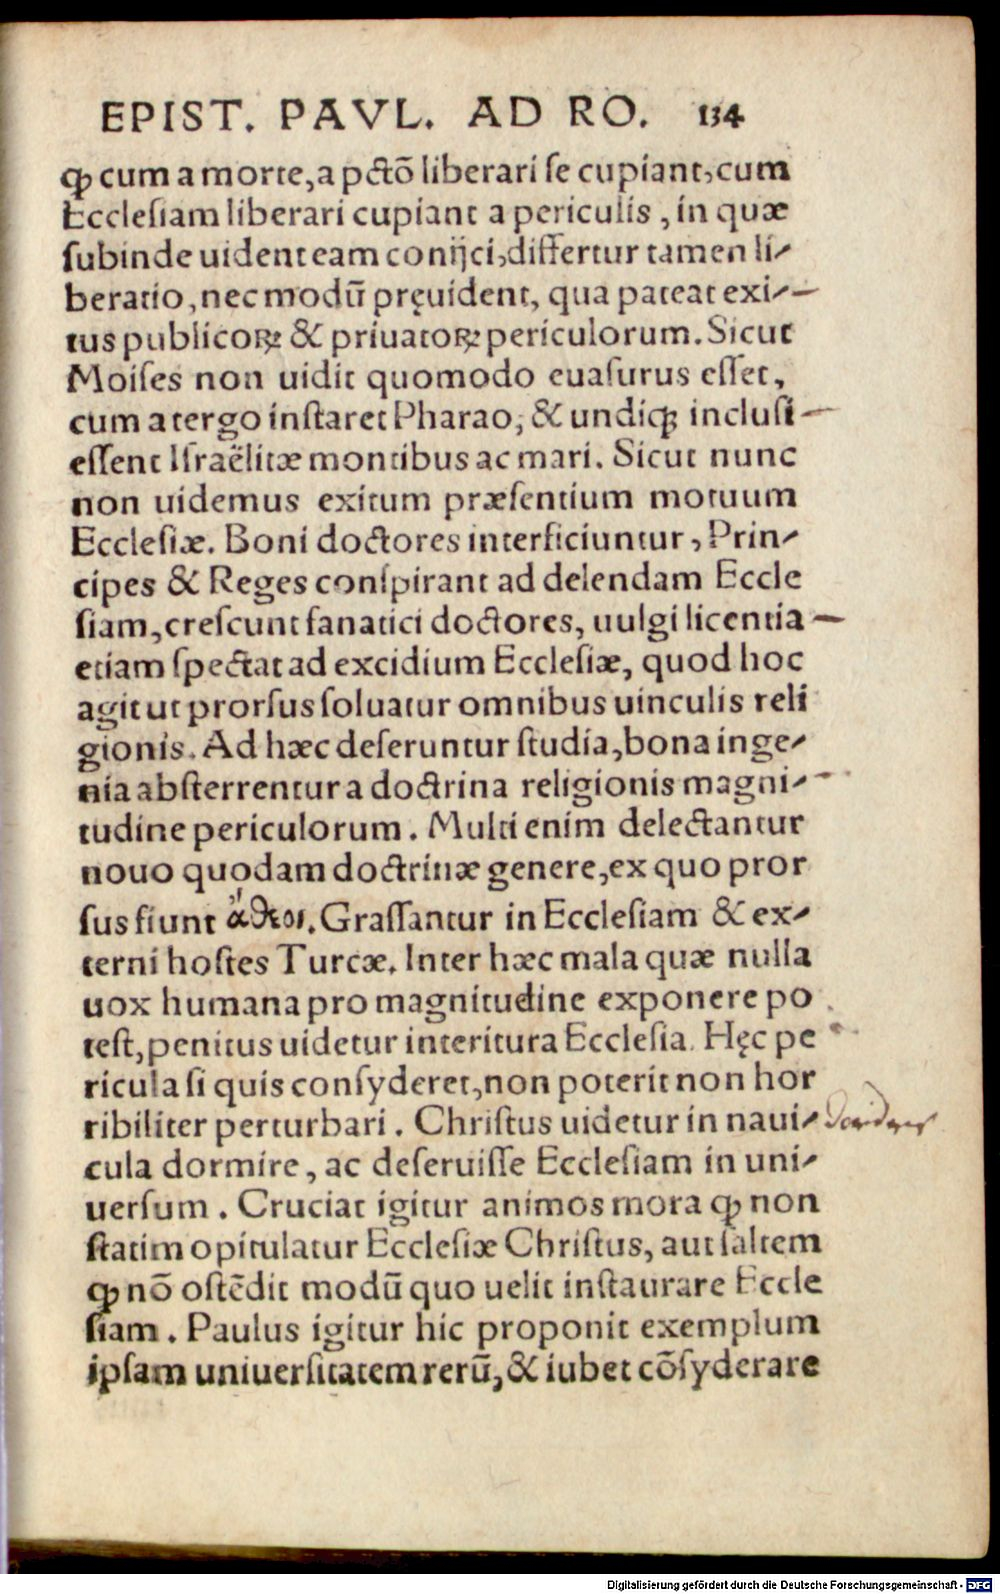 EPIST. PAVL. AD RO. 134
ꝙ cum a morte, a pctō liberari se cupiant, cum
Ecclesiam liberari cupiant a periculis, in quæ
subinde uident eam conijci, differtur tamen li-
beratio, nec modū pręuident, qua pateat exi-
tus publicoꝝ & priuatoꝝ periculorum. Sicut
Moises non uidit quomodo euasurus esset,
cum a tergo instaret Pharao, & undiqꝫ inclusi
essent Israëlitæ montibus ac mari. Sicut nunc
non uidemus exitum præsentium motuum
Ecclesiæ. Boni doctores interficiuntur, Prin-
cipes & Reges conspirant ad delendam Eccle
siam, crescunt fanatici doctores, uulgi licentia
etiam spectat ad excidium Ecclesiæ, quod hoc
agit ut prorsus soluatur omnibus uinculis reli
gionis. Ad hæc deseruntur studia, bona inge-
nia absterrentur a doctrina religionis magni-
tudine periculorum. Multi enim delectantur
nouo quodam doctrinæ genere, ex quo pror
sus fiunt ἄθεοι. Grassantur in Ecclesiam & ex-
terni hostes Turcæ. Inter hæc mala quæ nulla
uox humana pro magnitudine exponere po
test, penitus uidetur interitura Ecclesia. Hęc pe
ricula si quis consyderet, non poterit non hor
ribiliter perturbari. Christus uidetur in naui-
cula dormire, ac deseruisse Ecclesiam in uni-
uersum. Cruciat igitur animos mora ꝙ non
statim opitulatur Ecclesiæ Christus, aut saltem
ꝙ nō ostēdit modū quo uelit instaurare Eccle
siam. Paulus igitur hic proponit exemplum
ipsam uniuersitatem rerū, & iubet cōsyderare
Digitalisierung gefördert durch die Deutsche Forschungsgemeinschaft - DFG